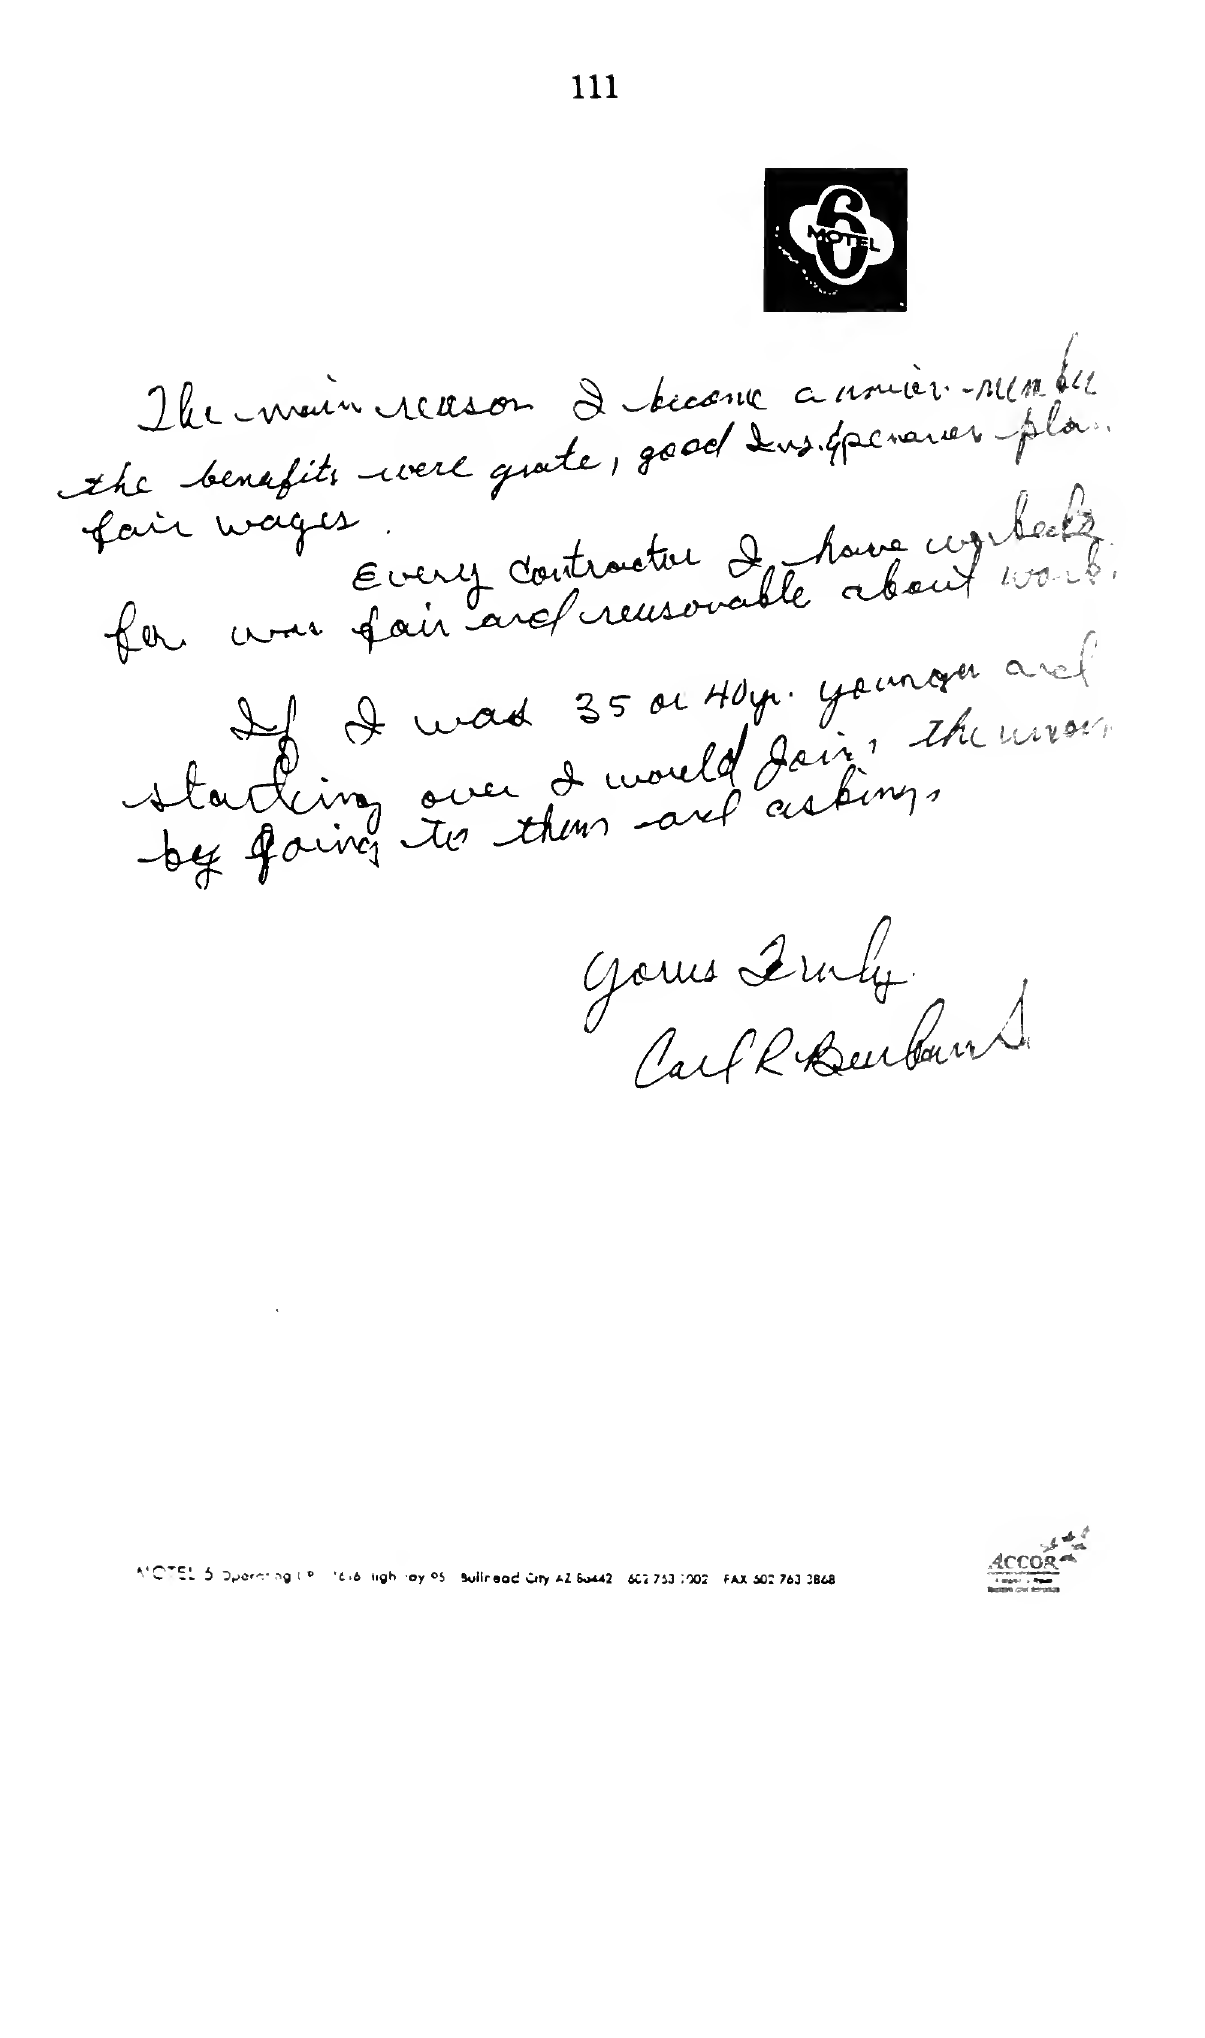 111
6
MOTEL
The main reason I become a union member
the benefits were grate, good Ins. &
fair wages.
Every contractor I have worked
for was fair and reasonable about work.
If I was 35 or 40 yr. younger and
starting over I would Join the union
by going to them and asking.
Yours Truly
Carl R
MOTEL 6 Operating L.P. Highway 95 Bullhead City AZ 86442 602 763 1002 FAX 602 763 3868
ACCOR